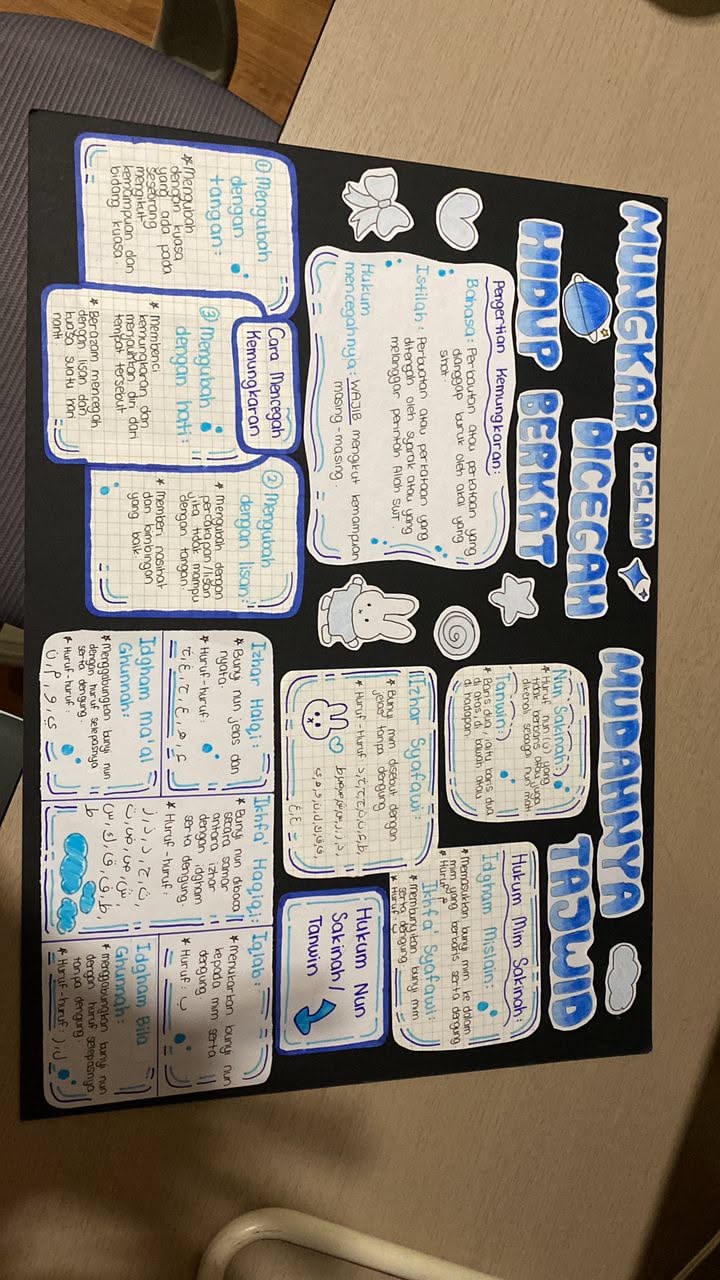 MUNGKAR
P.ISLAM
DICEGAH
HIDUP BERKAT
Pengertian Kemungkaran:
Bahasa: Perbuatan atau perkataan yang
dianggap buruk oleh akal yang
sihat.
Istilah: Perbuatan atau perkataan yang
ditegah oleh syarak atau yang
melanggar perintah Allah SWT.
Hukum
mencegahnya: WAJIB mengikut kemampuan
masing-masing.
Cara Mencegah
Kemungkaran
① Mengubah
dengan
tangan:
* Mengubah
dengan kuasa
yang ada pada
seseorang
mengikut
kemampuan dan
bidang kuasa.
③ Mengubah
dengan hati:
* Membenci
kemungkaran dan
menjauhkan diri dari
tempat tersebut
* Berazam mencegah
dengan lisan dan
kuasa suatu hari
nanti.
② Mengubah
dengan lisan:
* Mengubah dengan
percakapan/lisan
jika tidak mampu
dengan tangan.
* Memberi nasihat
dan bimbingan
yang baik.
MUDAHNYA
TAJWID
Nun Sakinah:
* Huruf nun (ن) yang
tidak berbaris atau juga
dikenali sebagai nun mati
Tanwin:
* Baris dua, iaitu baris dua
di atas, di bawah atau
di hadapan.
Hukum Mim Sakinah:
Idgham Mislain:
* Memasukkan bunyi mim ke dalam
mim yang berbaris serta dengung
* Huruf: م
Ikhfa' Syafawi:
* Membunyikan bunyi mim
serta dengung
* Huruf: ب
Izhar Syafawi:
* Bunyi mim disebut dengan
jelas tanpa dengung
* Huruf-Huruf:
Hukum Nun
Sakinah/
Tanwin
Izhar Halqi:
* Bunyi nun jelas dan
nyata.
* Huruf-huruf:
Idgham Ma'al
Ghunnah:
* Menggabungkan bunyi nun
dengan huruf selepasnya
serta dengung.
* Huruf-huruf:
ي, و, م, ن
Ikhfa' Haqiqi:
* Bunyi nun dibaca
secara samar
antara izhar
dengan idgham
serta dengung.
* Huruf-huruf:
Iqlab:
* Menukarkan bunyi nun
kepada mim serta
dengung
* Huruf: ب
Idgham Bila
Ghunnah:
* Menggabungkan bunyi nun
dengan huruf selepasnya
tanpa dengung.
* Huruf-huruf: ل, ر